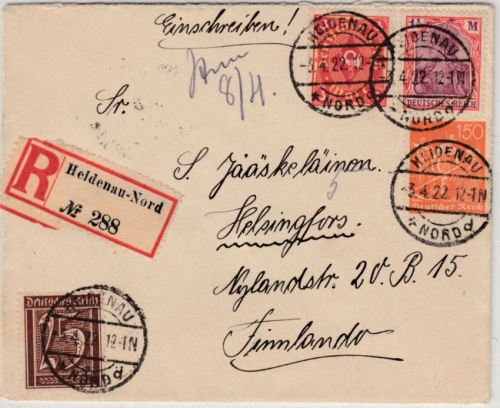 Einschreiben!
8/4.
HEIDENAU
-3.4.22.12-1N
NORD
1¼ M
HEIDENAU
3.4.22.12-1N
NORD
DEUTSCHES REICH
Sr.
150
HEIDENAU
-3.4.22.12-1N
NORD
Deutsches Reich
R
Heidenau-Nord
№ 288
S. Jääskeläinon.
5
Helsingfors.
Nylandstr. 20. B. 15.
Finnlando
Deutsches Reich
75
HEIDENAU
4.22.12-1N
NORD